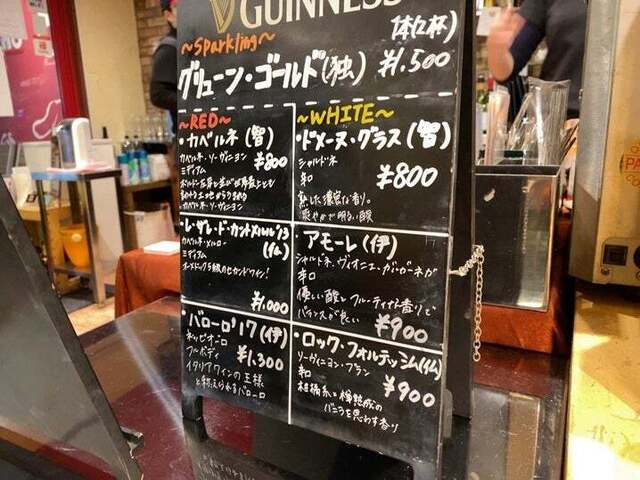 GUINNESS
~Sparkling~
1本(2杯)
グリューン・ゴールド(独) ¥1,500
~RED~
・カベルネ(智)
カベルネ・ソーヴィニヨン
ミディアム
¥800
カベルネ・ソーヴィニヨン
・レ・ザレ・ド・カントメルル'13
(仏)
カベルネ・メルロー
ミディアム
オーメドック5級のセカンドワイン!
¥1,000
・バローロ'17(伊)
ネッビオーロ
フルボディ
¥1,300
イタリアワインの王様
と称えられるバローロ
~WHITE~
・ドメーヌ・グラス(智)
シャルドネ
辛口
¥800
熟した濃密な香り。
爽やかで明るい酸
・アモーレ(伊)
シャルドネ、ヴィオニエ、ガルガネガ
辛口
優しい酸とフルーティな香りで
バランスが良い
¥900
・ロック・フォルテッシム(仏)
ソーヴィニヨン・ブラン
辛口
¥900
柑橘系と樽熟成の
バニラを思わす香り